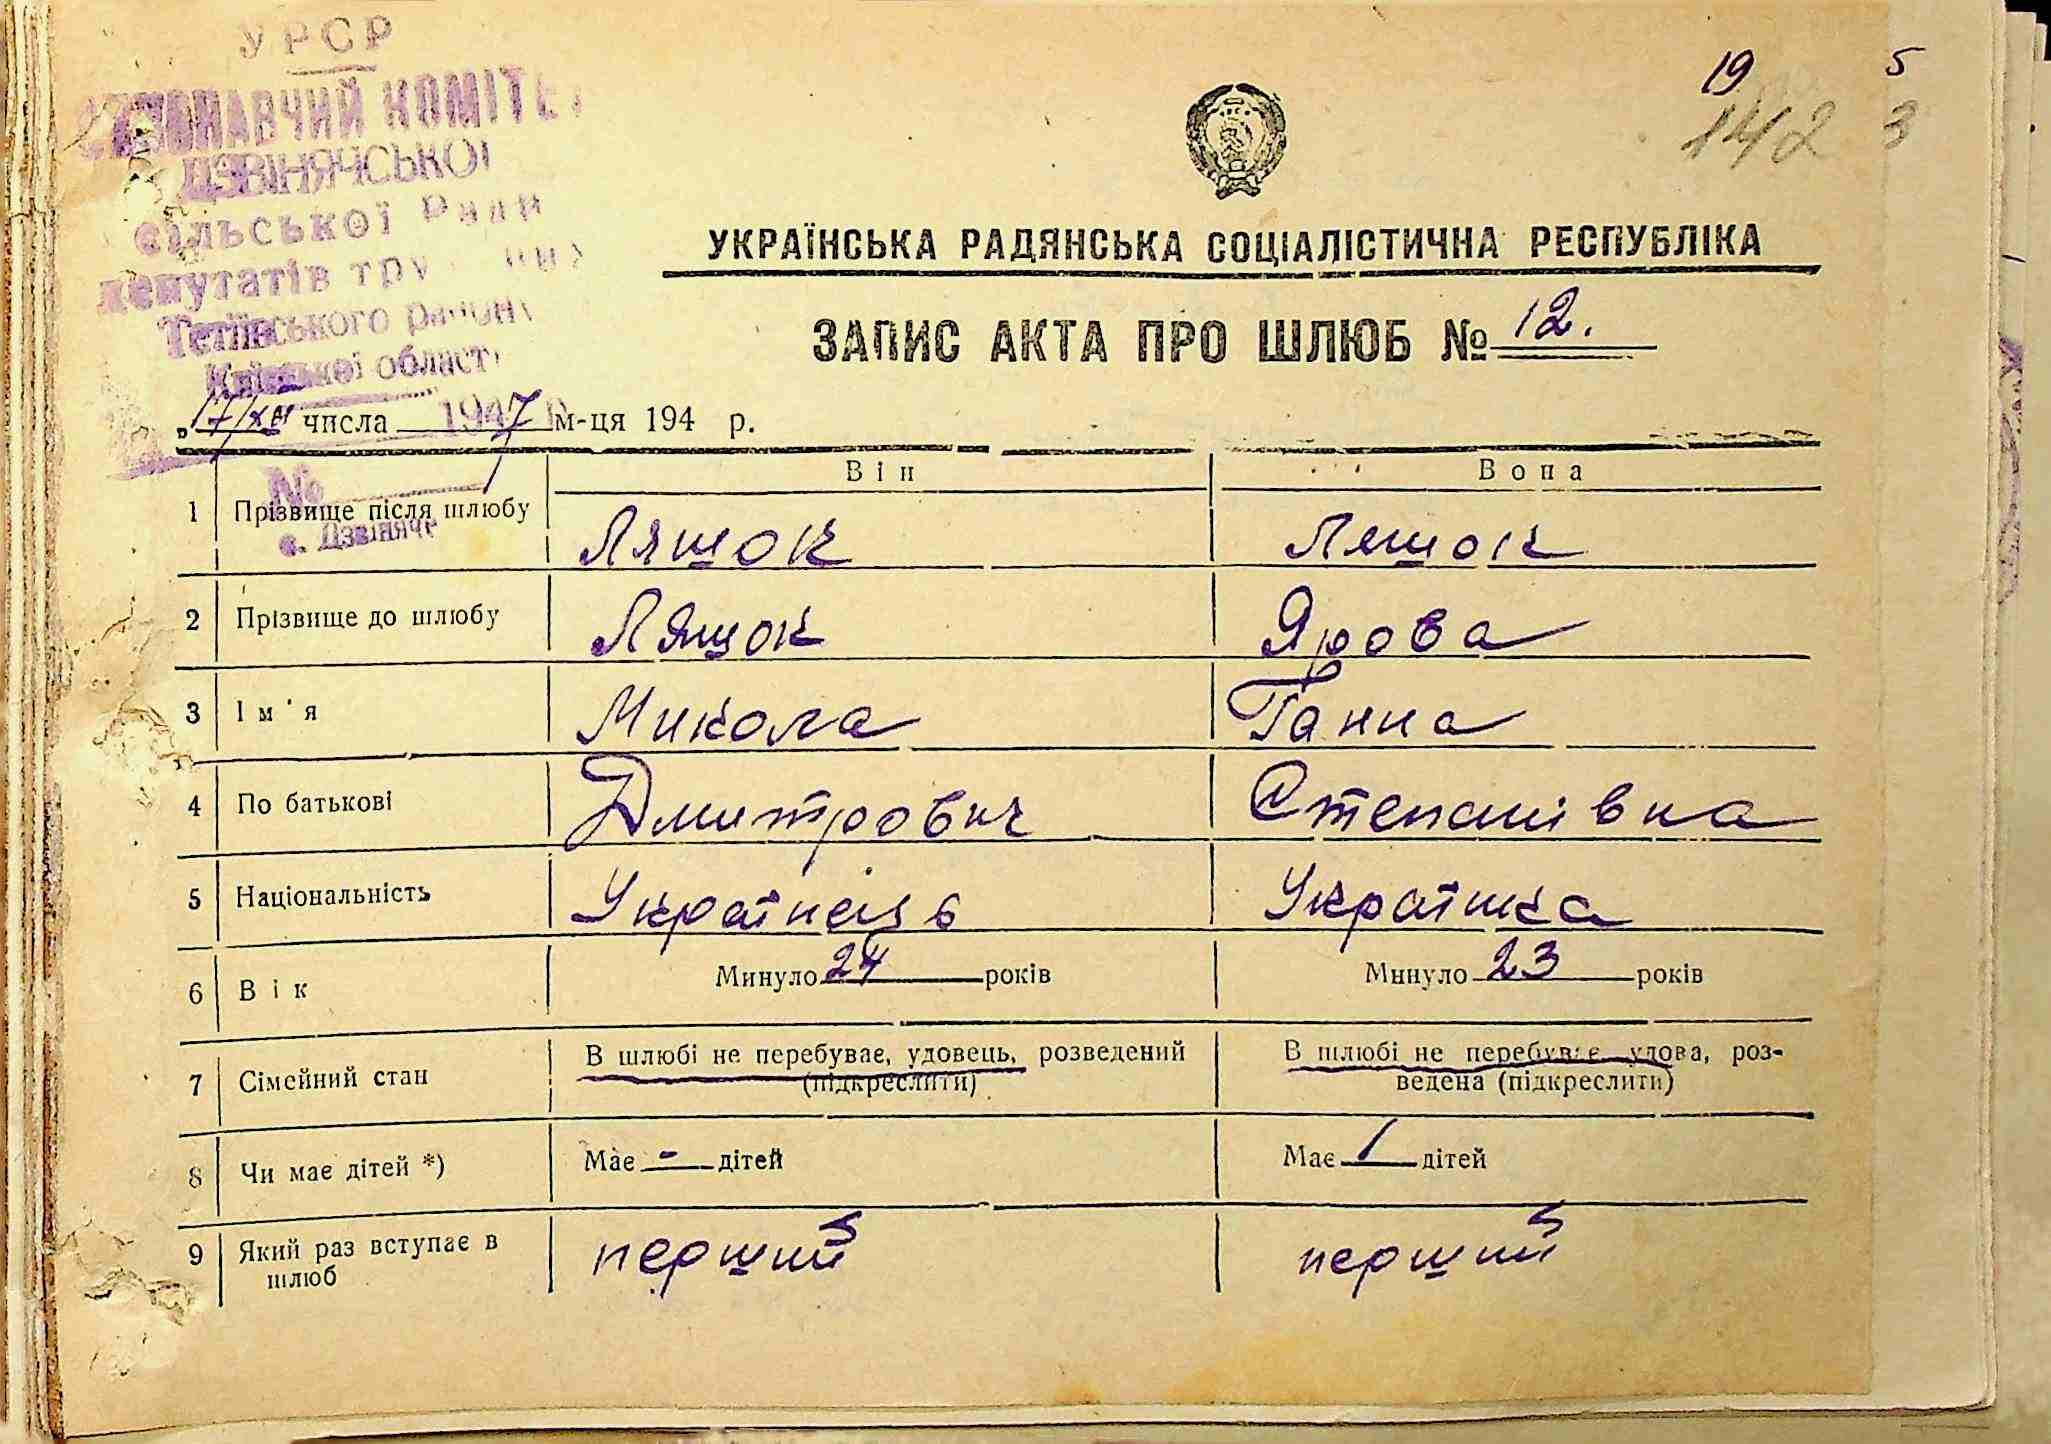 УРСР
ВИКОНАВЧИЙ КОМІТЕТ
ДЗВІНЯЧСЬКОЇ
сільської Ради
депутатів трудящих
Тетіївського району
Київської області
1947 р.
№
с. Дзвіняче
19 5
142 3
УКРАЇНСЬКА РАДЯНСЬКА СОЦІАЛІСТИЧНА РЕСПУБЛІКА
ЗАПИС АКТА ПРО ШЛЮБ № 12.
„17/XII числа м-ця 194 р.
Він Вона
1 Прізвище після шлюбу Ляшок Ляшок
2 Прізвище до шлюбу Ляшок Ярова
3 Ім'я Микола Ганна
4 По батькові Дмитрович Степанівна
5 Національність Українець Українка
6 Вік Минуло 24 років Минуло 23 років
7 Сімейний стан В шлюбі не перебуває, удовець, розведений (підкреслити) В шлюбі не перебуває удова, роз-
ведена (підкреслити)
8 Чи має дітей *) Має - дітей Має 1 дітей
9 Який раз вступає в шлюб перший перший